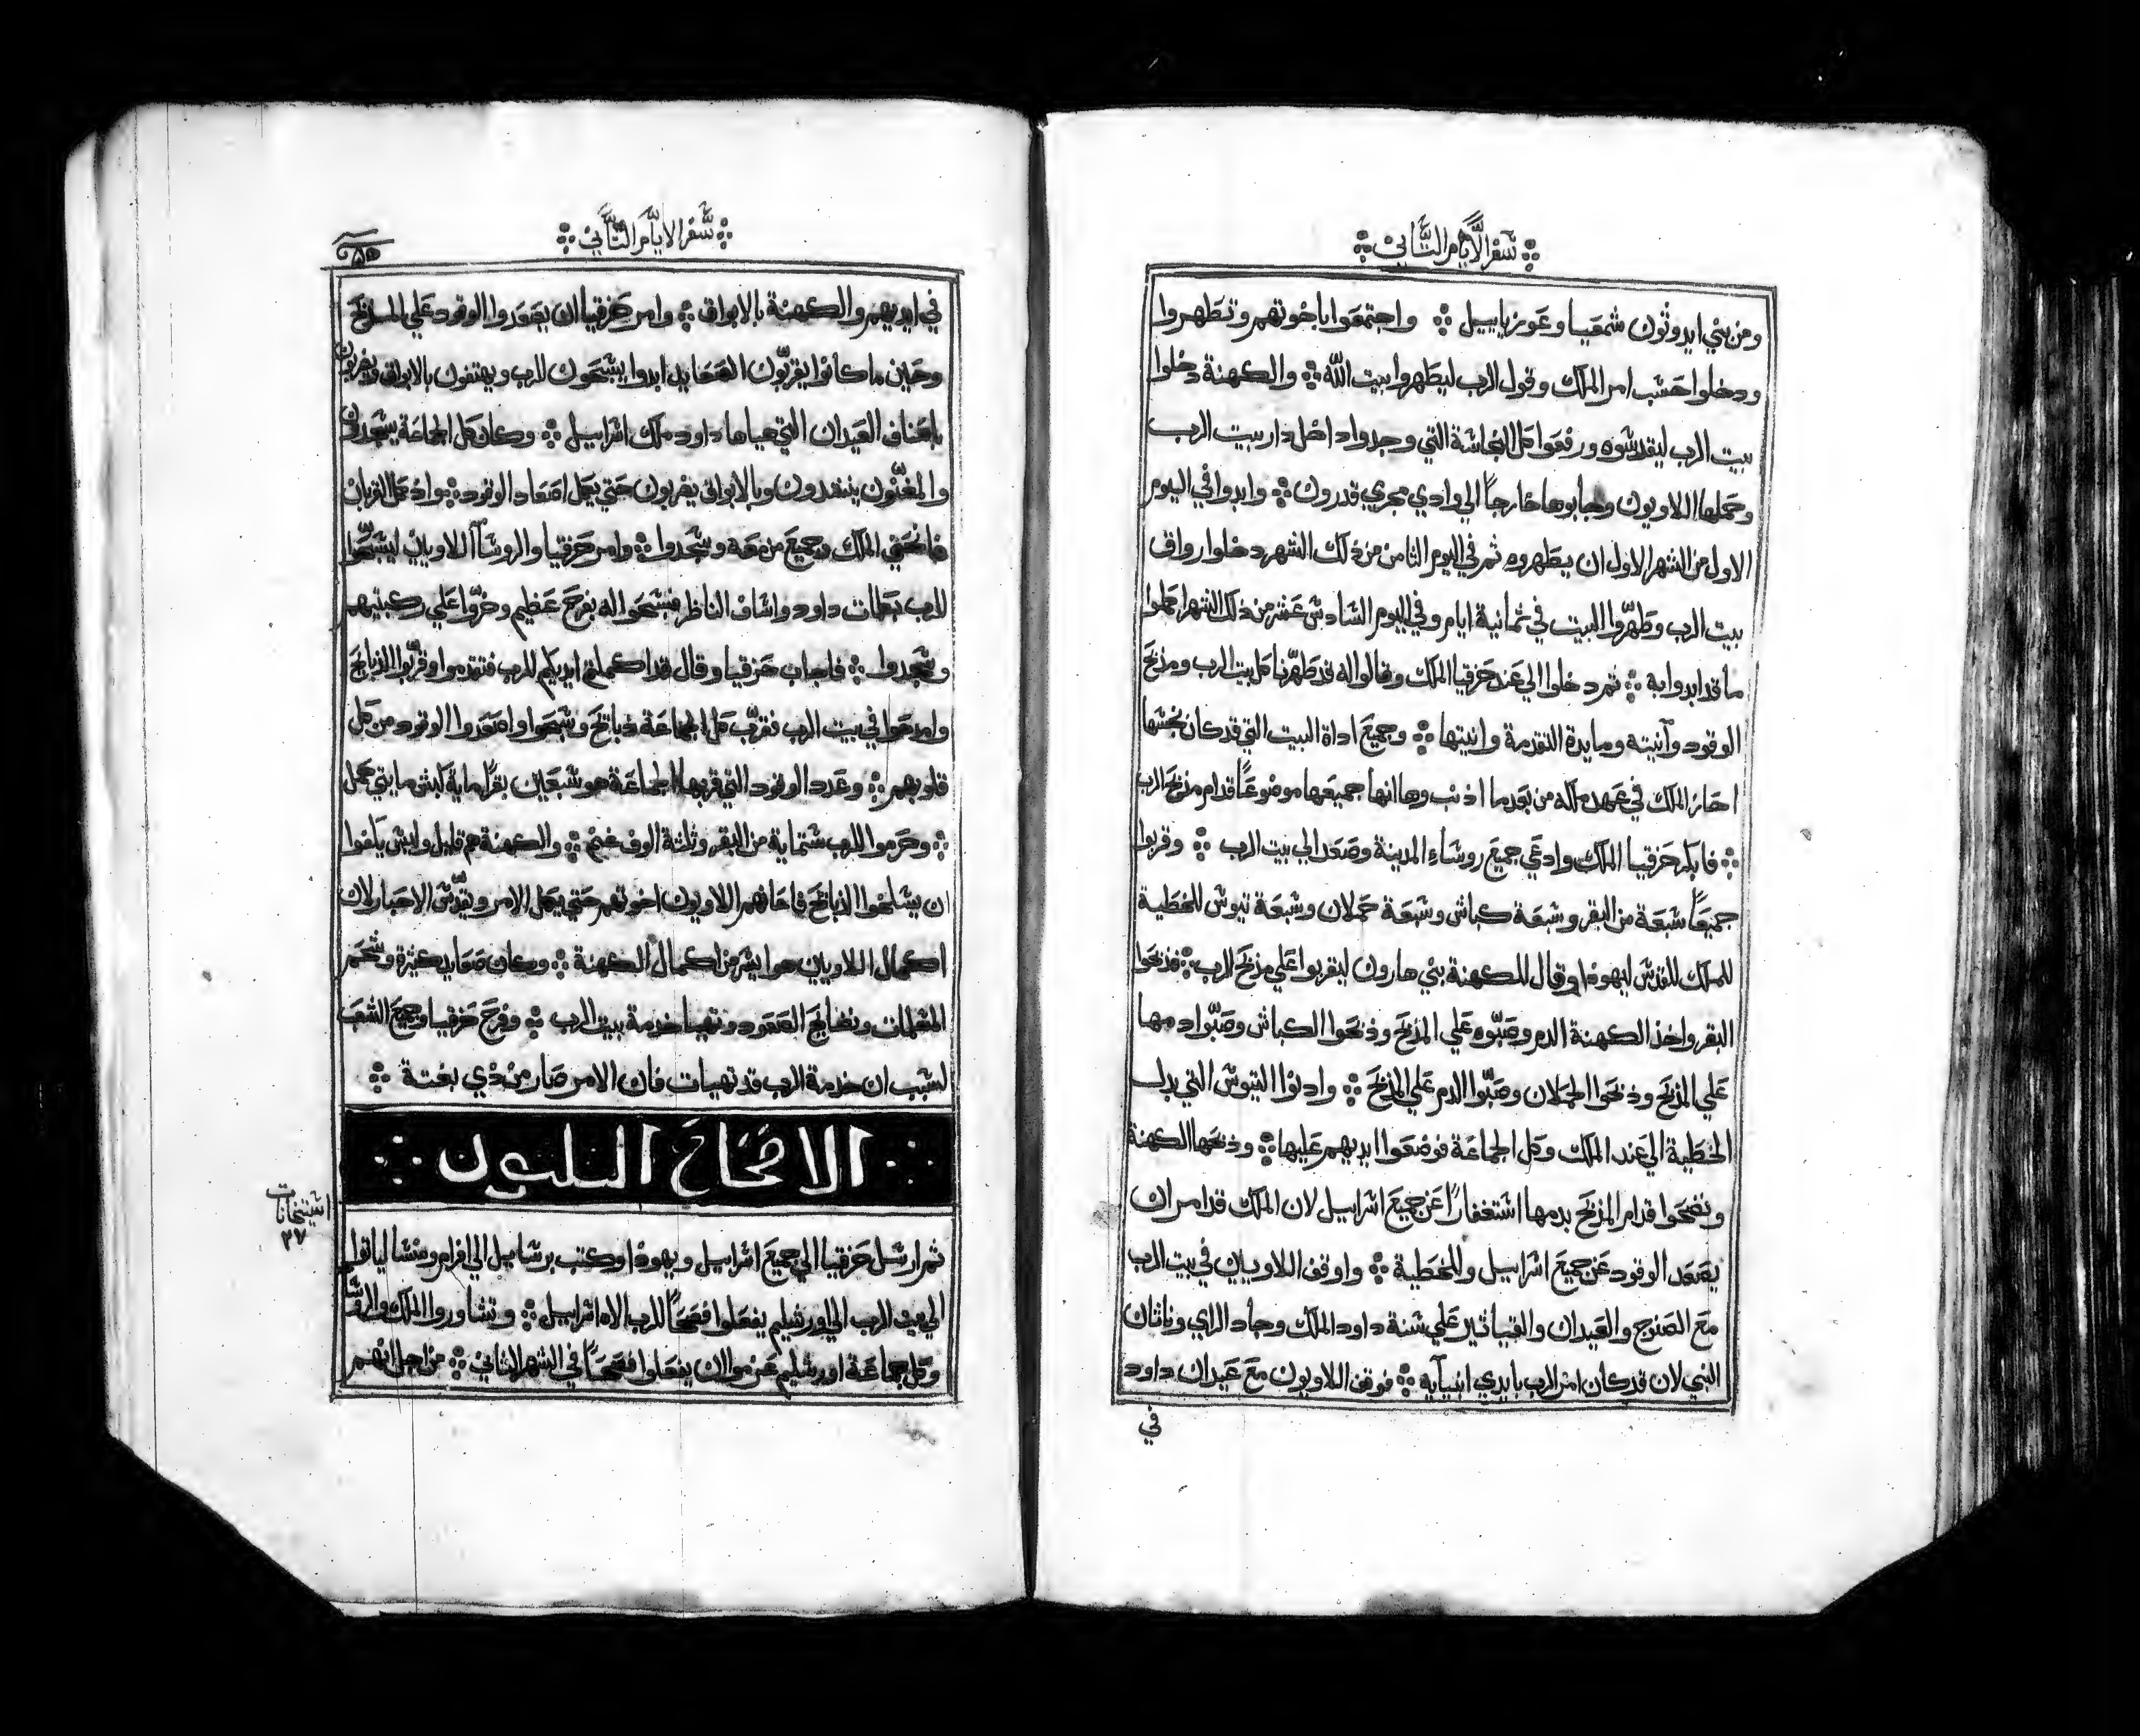 سفر الايام الثاني
ومن بني ايدوثون شمعيا وعوزياييل واجتمعوا باخوتهم وتطهروا
ودخلوا حسب امر الملك وقول الرب ليطهروا بيت الله والكهنة دخلوا
بيت الرب ليقدسوه ورفعوا كل النجاسة التي وجدوا داخل دار بيت الرب
وحملها اللاويون وجابوها خارجاً الي وادي مجري قدرون وابدوا في اليوم
الاول من الشهر الاول ان يطهروه ثم في اليوم الثامن من ذلك الشهر دخلوا رواق
بيت الرب وطهّروا البيت في ثمانية ايام وفي اليوم السادس عشر من ذلك الشهر اكملوا
ما قد ابدوا به ثم دخلوا الي عند حزقيا الملك وقالوا له قد طهّرنا كل بيت الرب ومذبح
الوقود وآنيته ومايدة التقدمة وانيتها وجميع اداة البيت التي قد كان نجسها
احاز الملك في عهد ملكه من بعد ما اذنب وها انها جميعها موضوعاً قدام مذبح الرب
فابكر حزقيا الملك وادعي جميع روساء المدينة وصعد الي بيت الرب وقربوا
جميعاً سبعة من البقر وسبعة كباش وسبعة حملان وسبعة تيوس للخطية
للملك للقدس ليهوذا وقال للكهنة بني هارون ليقربوا علي مذبح الرب فذبحوا
البقر واخذ الكهنة الدم وصبّوه علي المذبح وذبحوا الكباش وصبّوا دمها
علي المذبح وذبحوا الحملان وصبّوا الدم علي المذبح وادنوا التيوس التي بدل
الخطية الي عند الملك وكل الجماعة فوضعوا ايديهم عليها وذبحها الكهنة
ونضحوا قدام المذبح بدمها استغفاراً عن جميع اسراييل لان الملك قد امر ان
يصعد الوقود عن جميع اسراييل وللخطية واوقف اللاويين في بيت الرب
مع الصنوج والعيدان والقياثير علي سنة داود الملك وجاد الراي وناثان
النبي لان قد كان امر الرب بايدي انبيآيه فوقف اللاويون مع عيدان داود
في
سفر الايّام الثّاني
في ايديهم والكهنة بالابواق وامر حزقيا ان يصعدوا الوقود علي المذبح
وحين ما كانوا يقربّون الصعايد ابدوا يسبحون للرب ويهتفون بالابواق ويضربون
باصناف العيدان التي هياها داود ملك اسراييل وكان كل الجماعة يسجدون
والمغنّون ينشدون وبالابواق يضربون حتي يكمل اصعاد الوقود واذ كمل القربان
فانحني الملك وجميع من معه وسجدوا وامر حزقيا والروسآ اللاويين ليسبّحوا
للرب بكلمات داود واساف الناظر فسبحوا له بفرح عظيم وخرّوا علي ركبتيهم
وسجدوا فاجاب حزقيا وقال قد اكملتم ايديكم للرب فتقدموا وقرّبوا الذبايح
وامدحوا في بيت الرب فقرّب كل الجماعة ذبايح وسبحوا واصعدوا الوقود من كل
قلوبهم وعدد الوقود التي قربها الجماعة هو سبعين بقراً ماية كبش مايتي حمل
وحرموا للرب ستماية من البقر وثلثة الوف غنم والكهنة هم قليل وليس يكفوا
ان يسلخوا الذبائح فاعانهم اللاويون اخوتهم حتي يكمل الامر ويقدّس الاحبار لان
اكمال اللاويين هوا يسر من اكمال الكهنة وكان صعايد كثيرة وشحم
ونضايح الصعود وتهيا خدمة بيت الرب وفرح حزقيا وجميع الشعب
لسبب ان خدمة الرب قد تهيات فان الامر صار من ذي بغتة
الاصحاح الثلثون
ثم ارسل حزقيا الي جميع اسراييل ويهوذا وكتب برساييل الي افرام ومنسا لياتوا
الي بيت الرب الي اورشليم يفعلوا فصحاً للرب الاه اسراييل وتشاوروا الملك والروسا
وكل جماعة اورشليم عزموا ان يفعلوا فصحاً في الشهر الثاني من اجل انهم